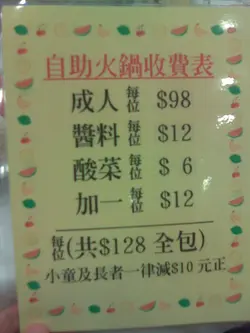 自助火鍋收費表
成人 每位 $98
醬料 每位 $12
酸菜 每位 $ 6
加一 每位 $12
每位(共$128 全包)
小童及長者一律減$10 元正